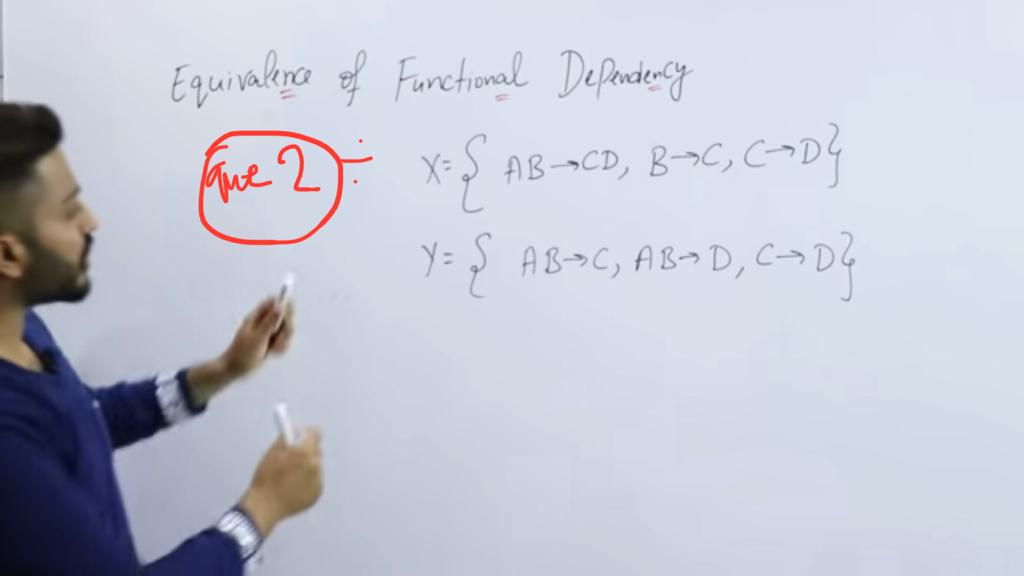 Equivalence of Functional Dependency
que 2 :- X= { AB→CD, B→C, C→D}
Y= { AB→C, AB→D, C→D}